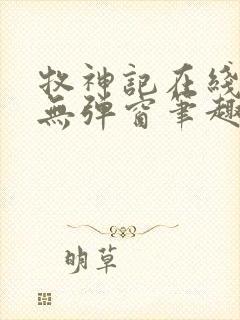 牧神記在綫
無弹窗筆趣
明草